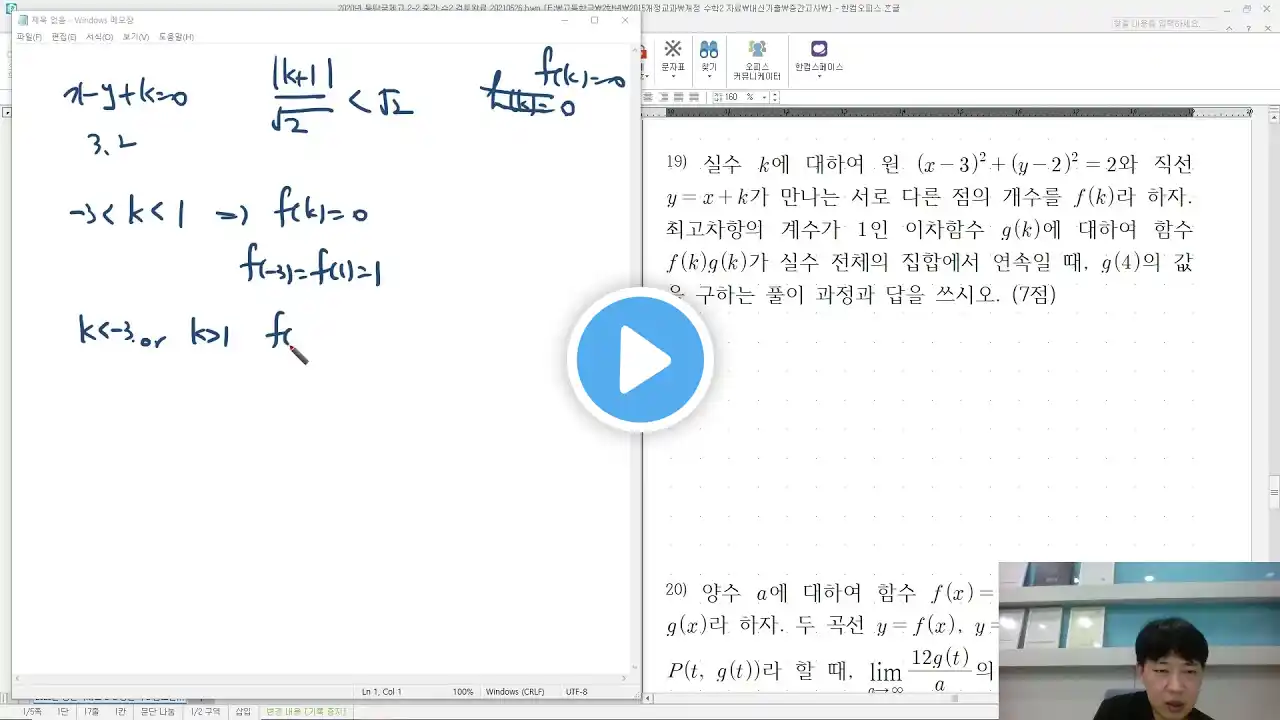 제목 없음 - Windows 메모장
파일(F) 편집(E) 서식(O) 보기(V) 도움말(H)
x-y+k=0
3. 2
|k+1|/√2 < √2
f(k)=0
-3< k < 1 => f(k)=0
f(-3)=f(1)=1
k<-3. or k>1 f(
Ln 1, Col 1 100% Windows (CRLF) UTF-8
찾을 내용을 입력하세요.
문자표
찾기
오피스 커뮤니케이터
한컴스페이스
160 %
19) 실수 k에 대하여 원 (x-3)²+(y-2)²=2와 직선
y=x+k가 만나는 서로 다른 점의 개수를 f(k)라 하자.
최고차항의 계수가 1인 이차함수 g(k)에 대하여 함수
f(k)g(k)가 실수 전체의 집합에서 연속일 때, g(4)의 값
을 구하는 풀이 과정과 답을 쓰시오. (7점)
20) 양수 a에 대하여 함수 f(x)=
g(x)라 하자. 두 곡선 y=f(x), y=
P(t, g(t))라 할 때, lim a→∞ 12g(t)/a 의
1/5쪽 1단 17줄 1칸 문단 나눔 1/2 구역 삽입 변경 내용 [기록 중지]